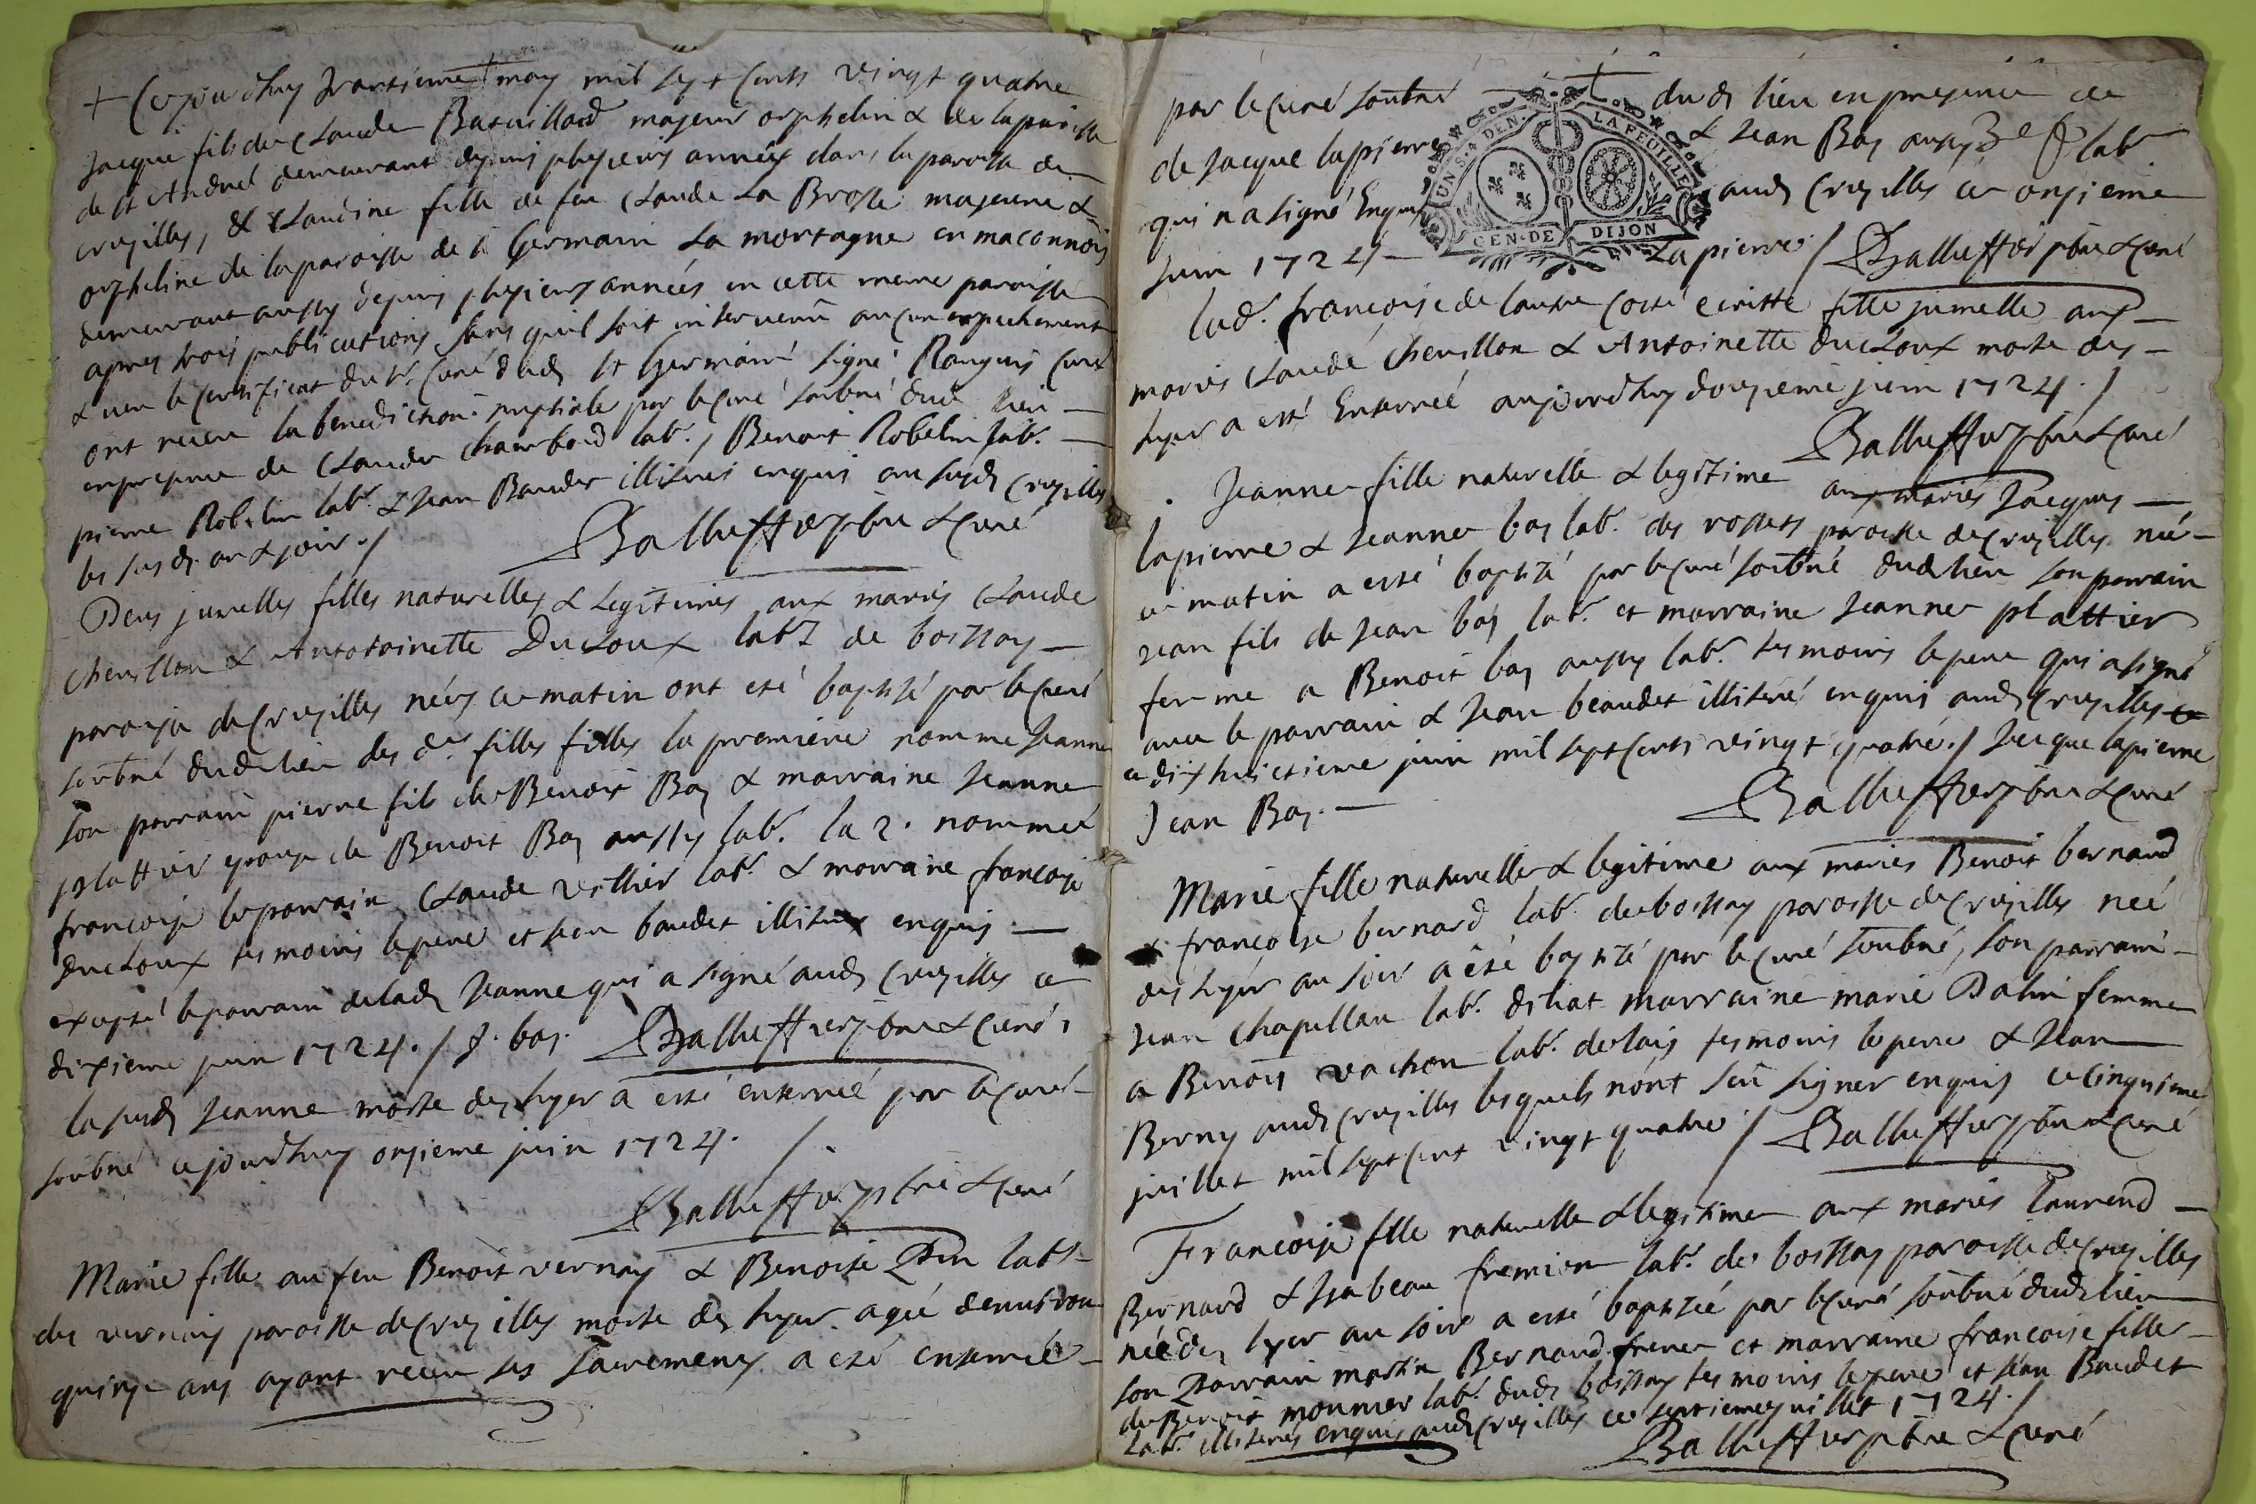 + Cejourdhuy trentieme may mil sept cents vingt quatre
Jacque fils de Claude Bataillard majeur orphelin & de la paroisse
de St André demeurant depuis plusieurs années dans la paroisse de
cruzilles, & Claudine fille de feu Claude La Brosse majeure &
orpheline de la paroisse de St Germain La montagne en maconnois
demeurant aussy depuis plusieurs années en cette meme paroisse
apres trois publications sans quil soit intervenu aucun empechement
& veu le certificat du Sr Curé dud. St Germain signé curé
ont receu la benediction nuptiale par le curé soubné dud. lieu
en presence de Claude Chambard lab. / Benoit Robelin lab.
pierre Robelin lab. & Jean Baudet illiterés enquis au susd. cruzilles
les susd. an & jour. /
Balluffier ptre & curé
Deux jumelles filles naturelles & legitimes aux mariés Claude
chevillon & Antotoinette Ducloux lab. de boissay
paroisse de cruzilles nées ce matin ont esté baptisé par le curé
soubné dud. lieu des d. filles filles la premiere nommé Jeanne
son parrain pierre fils de Benoit Bay & marraine Jeanne
plattier epouse de Benoit Bay aussy lab. la 2. nommée
françoise le parrain Claude vellier lab. & marraine françoise
ducloux tesmoins le pere et Jean baudet illiterés enquis
excepté le parrain de lad. Jeanne qui a signé aud. cruzilles ce
dixieme juin 1724. / J. bay. Balluffier ptre & curé
la susd. Jeanne morte des hyer a esté enterrée par le curé
soubné cejourdhuy onzieme juin 1724. /.
Balluffier ptre & curé
Marie fille au feu Benoit vernay & Benoite lab.
des vernays paroisse de cruzilles morte des hyer agée denviron
quinze ans ayant receu ses sacremens a esté enterrée
par le curé soubné dud. lieu en presence de
de Jacque lapierre & Jean Bay aussy lab.
qui na signé Enquis aud. cruzilles ce onzieme
juin 1724 Lapierre / Balluffier ptre & curé
UN S. 4 DEN. LA FEUILLE
GEN. DE DIJON
lad. françoise de lautre costé ecritte fille jumelle aux
mariés Claude chevillon & Antoinette ducloux morte des
hyer a esté Enterrée aujourdhuy douzieme juin 1724. /
Balluffier ptre & curé
Jeanne fille naturelle & legitime aux mariés Jacques
lapierre & Jeanne bay lab. des rossets paroisse de cruzilles née
ce matin a esté baptisé par le curé soubné dud. lieu son parrain
Jean fils de Jean bay lab. et marraine Jeanne plattier
femme a Benoit bay aussy lab. tesmoins le pere qui a signé
avec le parrain & Jean beaudet illiteré enquis aud. cruzilles ce
ce dix huictieme juin mil sept cents vingt quatre. / Jacque lapierre
Jean Bay. Balluffier ptre & curé
Marie fille naturelle & legitime aux mariés Benoit bernard
& françoise bernard lab. de boissay paroisse de cruzilles née
des hyer au soir a esté baptisé par le curé soubné, son parrain
Jean chapellan lab. marraine marie Dalin femme
a Benoit vachon lab. tesmoins le pere & Jean
Berny aud. cruzilles lesquels nont seü signer enquis ce cinquieme
juillet mil sept cent vingt quatre / Balluffier ptre & curé
Françoise fille naturelle & legitime aux mariés Laurend
Bernard & Isabeau fremion lab. de boissay paroisse de cruzilles
née des hyer au soir a esté baptisée par le curé soubné dud. lieu
son Parrain martin Bernard frere et marraine francoise fille
de Benoit mounier lab. dud. boissay tesmoins le pere et Jean Baudet
lab. illiterés enquis aud. cruzilles ce septieme juillet 1724. /
Balluffier ptre & curé